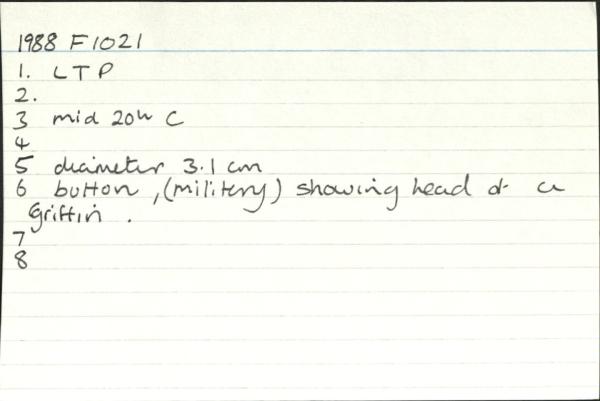 1988 F1021
1. LTP
2.
3 mid 20th C
4
5 diameter 3.1 cm
6 button, (military) showing head of a
griffin.
7
8